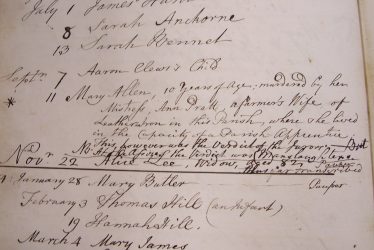 July 1 James
8 Sarah Anchorne
13 Sarah Kennet
Septr. 7 Aaron Clews's Child
* 11 Mary Allen, 10 Years of Age; murdered by her
Mistress, Ann Pratt, a Farmer's Wife of
in this Parish, where she lived
in the Capacity of a Parish Apprentice
No: this however was the Verdict of the But
the Verdict was Manslaughter
Novr 22 Alice Lee, Widow, Aged 82
January 28 Mary Butler Pauper
February 3 Thomas Hill (an Infant)
19 Hannah Hill.
March 4 Mary James